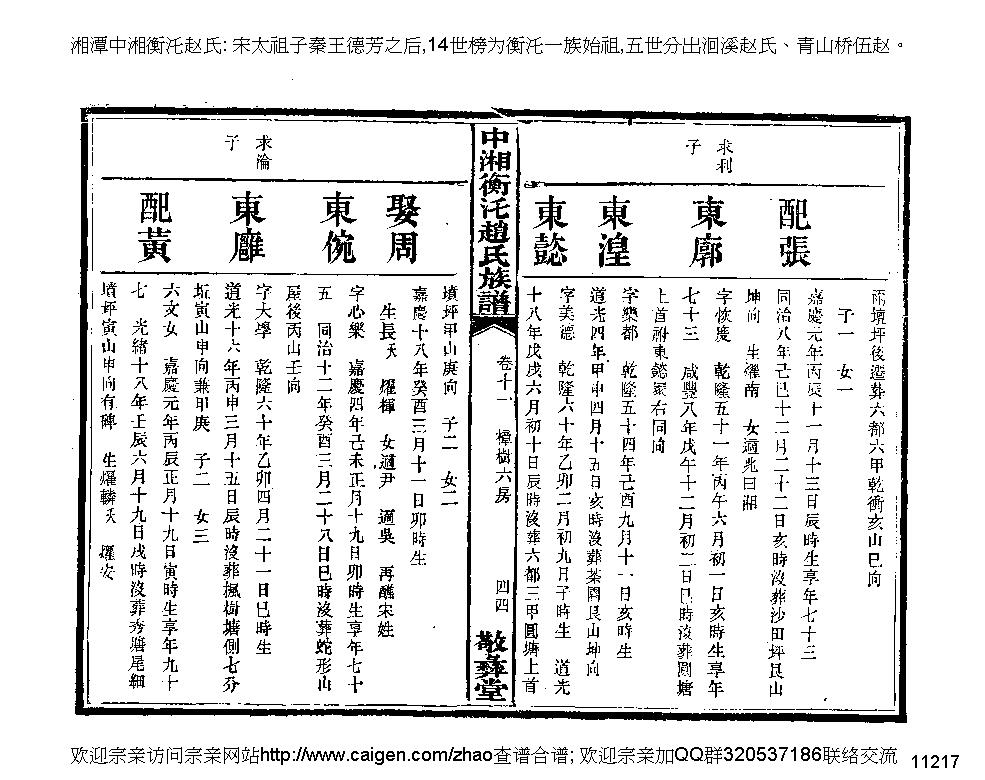 湘潭中湘衡沱赵氏: 宋太祖子秦王德芳之后,14世榜为衡沱一族始祖,五世分出洄溪赵氏、青山桥伍赵。
求利
子
雨墳坪後遷葬六都六甲乾衝亥山巳向
子一 女一
配張
嘉慶元年丙辰十一月十三日辰時生享年七十三
同治八年己巳十二月二十二日亥時沒葬沙田坪艮山
坤向 生燿南 女適
東廓
字恢慶 乾隆五十一年丙午六月初一日亥時生享年
七十三 咸豐八年戊午十二月初二日巳時沒葬圓塘
上首祔東懿冢右同向
東湟
字樂都 乾隆五十四年己酉九月十一日亥時生
道光四年甲申四月十五日亥時沒葬茶園艮山坤向
東懿
字美德 乾隆六十年乙卯二月初九日子時生 道光
十八年戊戌六月初十日辰時沒葬六都三甲圓塘上首
中湘衡沱趙氏族譜
卷十一 樟樹六房 四四
敬彝堂
求瀹
子
墳坪甲山庚向 子二 女二
娶周
嘉慶十八年癸酉三月十一日卯時生
生長夭 燿楎 女適尹 適吳 再醮宋姓
東惋
字心樂 嘉慶四年己未正月十九日卯時生享年七十
五 同治十二年癸酉三月二十八日巳時沒葬蛇形山
屋後丙山壬向
東廱
字大學 乾隆六十年乙卯四月二十一日巳時生
道光十六年丙申三月十五日辰時沒葬楓樹塘側七分
坵寅山申向兼甲庚 子二 女三
配黃
六文女 嘉慶元年丙辰正月十九日寅時生享年九十
七 光緒十八年壬辰六月十九日戌時沒葬秀塘尾細
墳坪寅山申向有碑 生燿轔夭 燿安
欢迎宗亲访问宗亲网站http://www.caigen.com/zhao查谱合谱; 欢迎宗亲加QQ群320537186联络交流 11217